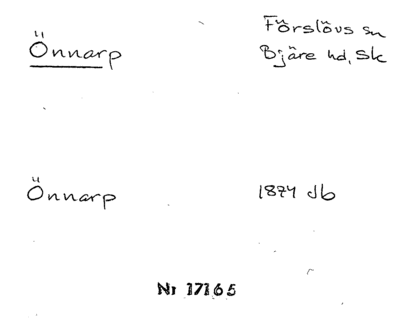 Önnarp
Förslövs sn
Bjäre hd, Sk
Önnarp
1874 Jb
Nr 17165